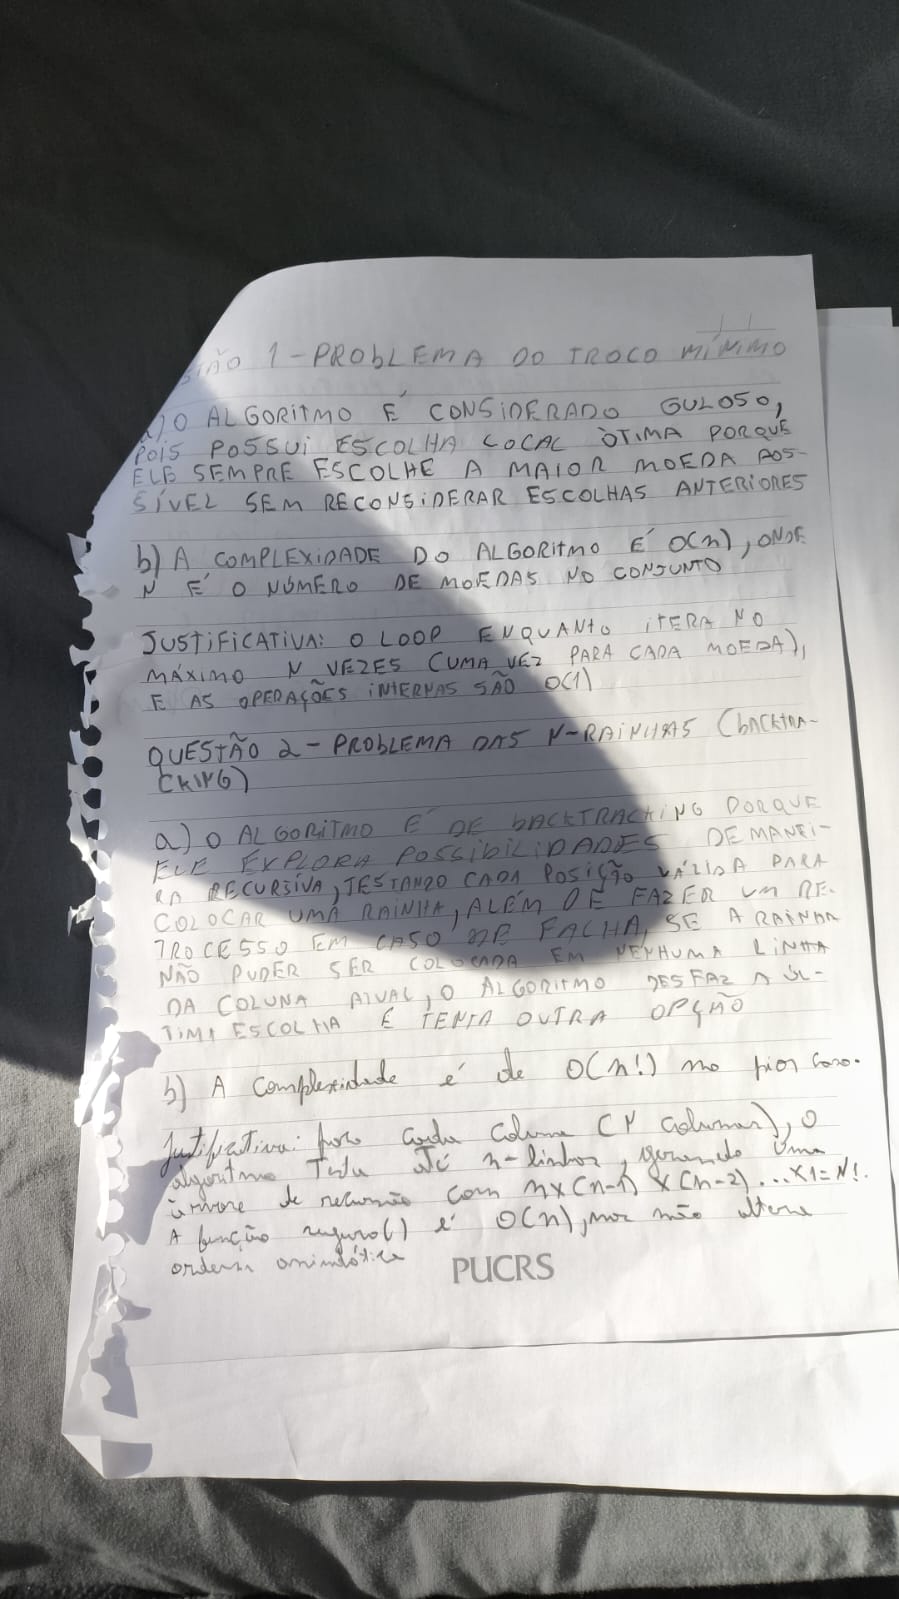 STÃO 1 - PROBLEMA DO TROCO MÍNIMO
a) O ALGORITMO É CONSIDERADO GULOSO,
POIS POSSUI ESCOLHA LOCAL ÓTIMA PORQUE
ELE SEMPRE ESCOLHE A MAIOR MOEDA POS-
SÍVEL SEM RECONSIDERAR ESCOLHAS ANTERIORES
b) A COMPLEXIDADE DO ALGORITMO É O(n), ONDE
N É O NÚMERO DE MOEDAS NO CONJUNTO
JUSTIFICATIVA: O LOOP ENQUANTO ITERA NO
MÁXIMO N VEZES (UMA VEZ PARA CADA MOEDA),
E AS OPERAÇÕES INTERNAS SÃO O(1)
QUESTÃO 2 - PROBLEMA DAS N-RAINHAS (BACKTRA-
CKING)
a) O ALGORITMO É DE BACKTRACKING PORQUE
ELE EXPLORA POSSIBILIDADES DE MANEI-
RA RECURSIVA, TESTANDO CADA POSIÇÃO VÁLIDA PARA
COLOCAR UMA RAINHA, ALÉM DE FAZER UM RE-
TROCESSO EM CASO DE FALHA, SE A RAINHA
NÃO PUDER SER COLOCADA EM NENHUMA LINHA
DA COLUNA ATUAL, O ALGORITMO DESFAZ A ÚL-
TIMA ESCOLHA E TENTA OUTRA OPÇÃO
b) A complexidade é de O(n!) no pior caso.
Justificativa: para cada coluna (N colunas), o
algoritmo Testa até n-linhas, gerando uma
árvore de recursão com n x (n-1) x (n-2) ... x 1 = N!.
A função seguro() é O(n), mas não altera
ordem assintótica
PUCRS